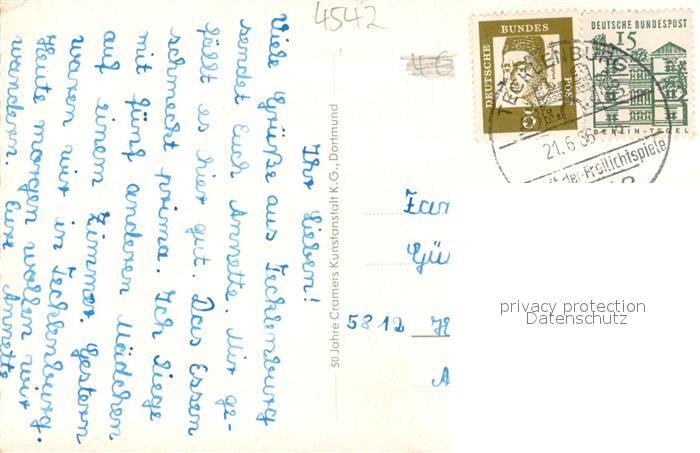 4542
Ihr Lieben!
Viele Grüße aus Tecklenburg
sendet Euch Annette. Mir ge-
fällt es hier gut. Das Essen
schmeckt prima. Ich liege
mit fünf anderen Mädchen
auf einem Zimmer. Gestern
waren wir in Tecklenburg.
Heute morgen wollen wir
wandern. Eure Annette
50 Jahre Cramers Kunstanstalt K.G., Dortmund
DEUTSCHE BUNDESPOST
5
DEUTSCHE BUNDESPOST
15
BERLIN-TEGEL
TECKLENBURG
21.6.66
der Freilichtspiele
Fam
Gü
5812 H
A
privacy protection
Datenschutz